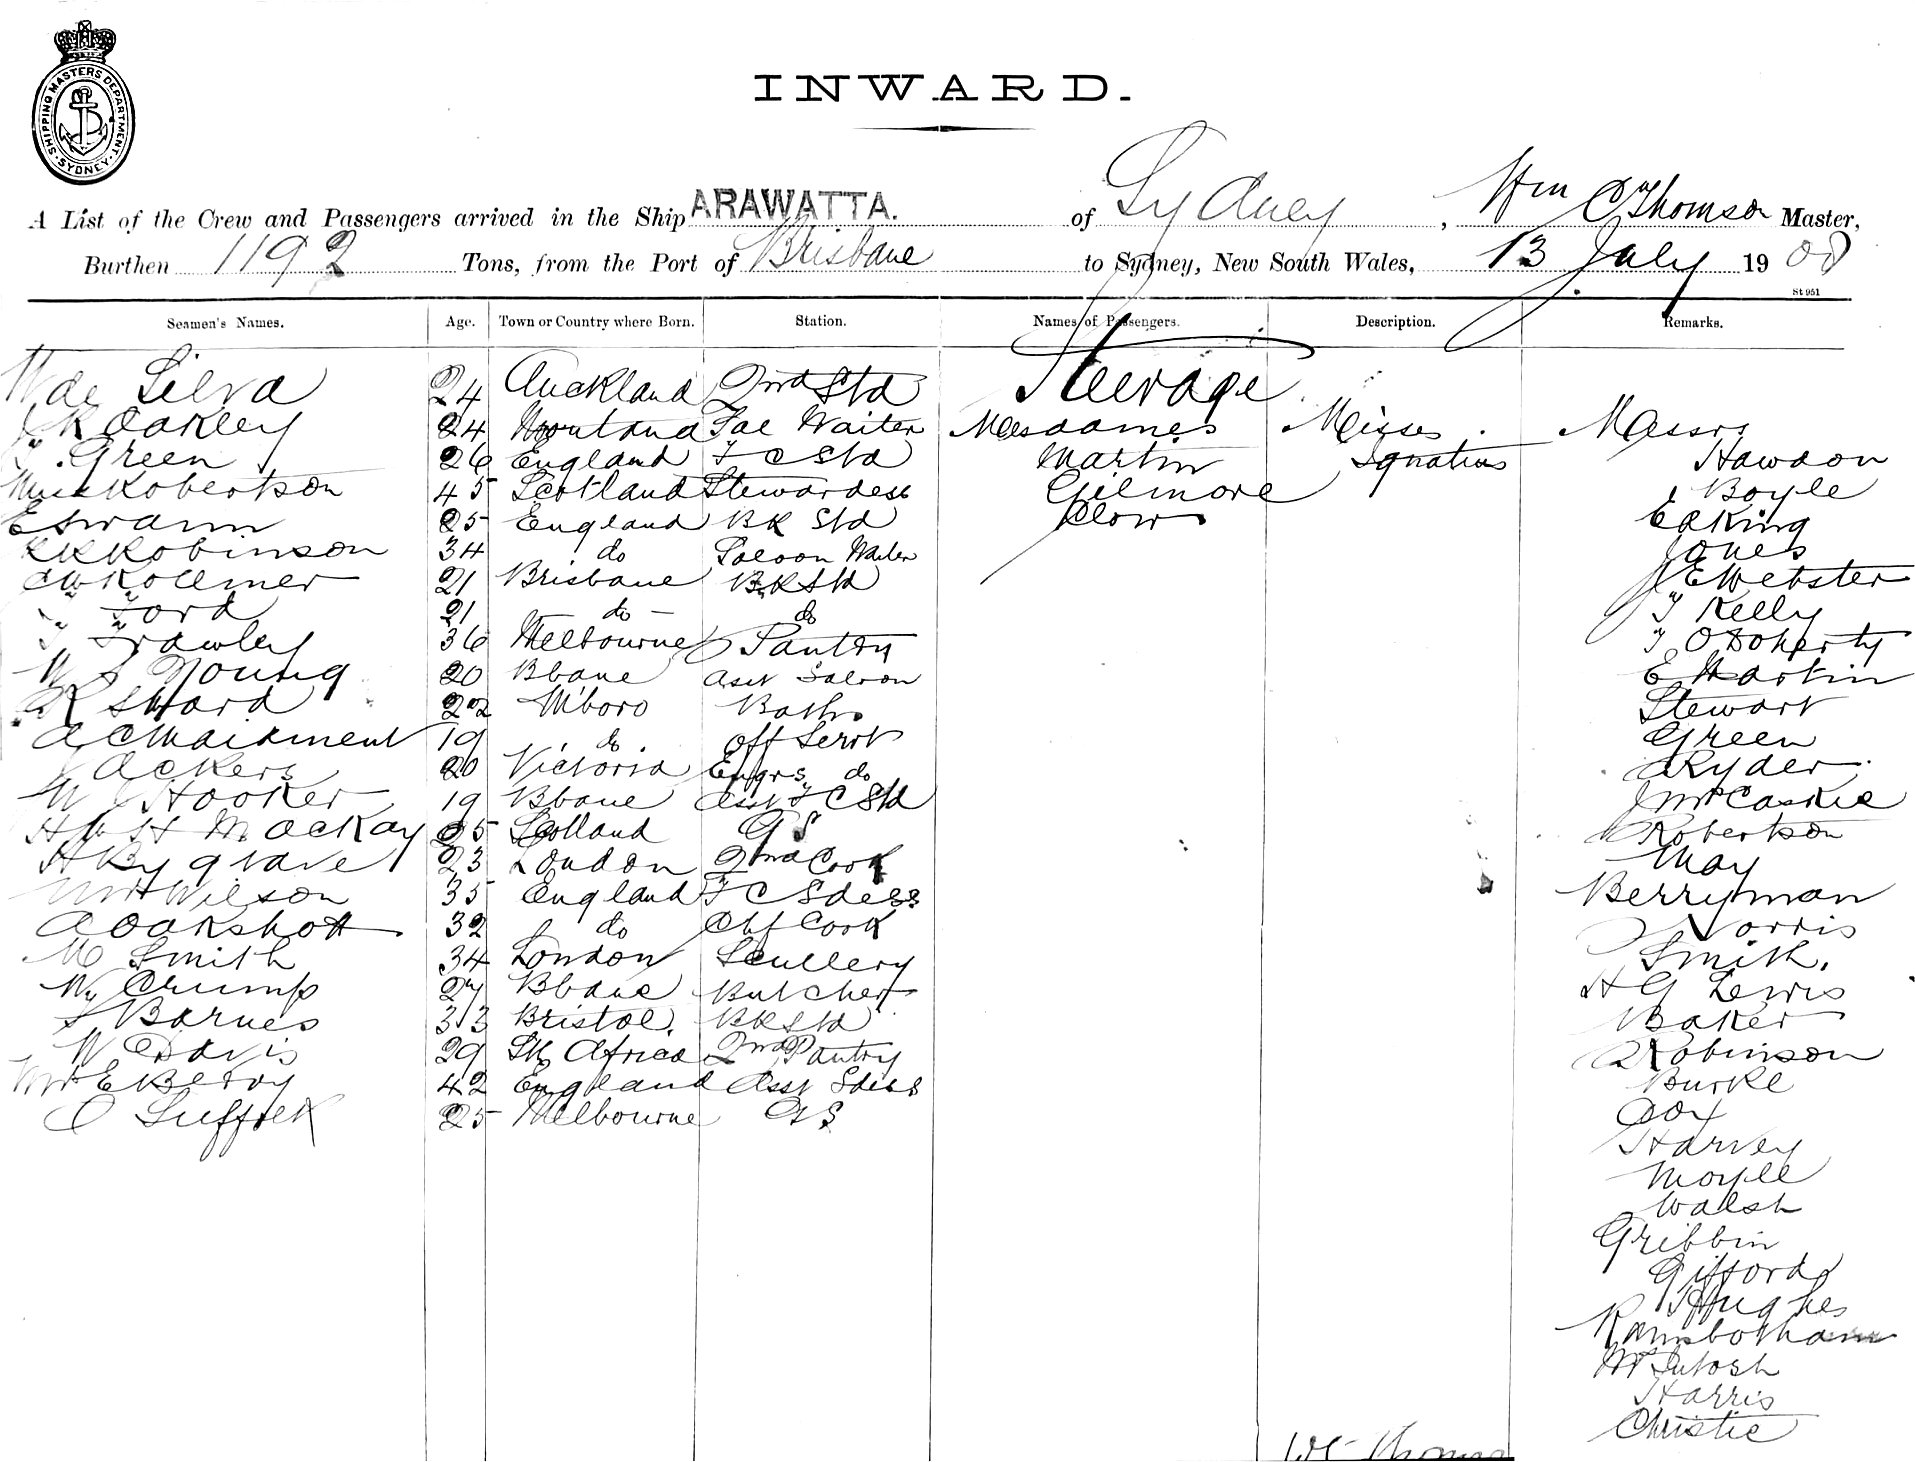 SHIPPING MASTERS DEPARTMENT · SYDNEY ·
INWARD.
A List of the Crew and Passengers arrived in the Ship ARAWATTA. of Sydney, Wm C Thomson Master,
Burthen 1192 Tons, from the Port of Brisbane to Sydney, New South Wales, 13 July 1908
St 951
Seamen's Names. Age. Town or Country where Born. Station. Names of Passengers. Description. Remarks.
W de Silva 24 Auckland 2nd Std Steerage
J R Oakley 24 Sal Waiter Mesdames Misses Messrs
Green 26 England F C Std Martin Ignatius Hawdon
Robertson 45 Scotland Stewardess Gilmore Boyle
E Swann 25 England BK Std Clow E A King
Robinson 34 do Saloon Waiter Jones
Kollmer 21 Brisbane BK Std J E Webster
Ford 21 do do T Kelly
T Frawley 36 Melbourne Pantry T O'Doherty
W S Young 20 Bbane Asst Saloon E Martin
R S Ward 22 M'boro Baths Stewart
A C Maidment 19 do Off Servt Green
Ackers 20 Victoria Engrs do Ryder
W J Hooker 19 Bbane Asst F C Std J McCaskie
H W H Mackay 25 Scotland G S Robertson
H Bygrave 23 London 2nd Cook May
Wilson 35 England F C Sdess Berryman
A Oakshott 32 do Chf Cook Norris
M Smith 34 London Scullery Smith.
Wm Crump 27 Bbane Butcher H G Lewis
S Barnes 33 Bristol. BK Std Baker
W Davis 29 Sth Africa 2nd Pantry Robinson
Mrs E Berry 42 England Asst Sdess Burke
C Suffolk 25 Melbourne G S Cox
Harvey
Moyle
Walsh
Gribbin
Gifford
Hughes
Ramsbotham
McIntosh
Harris
Christie